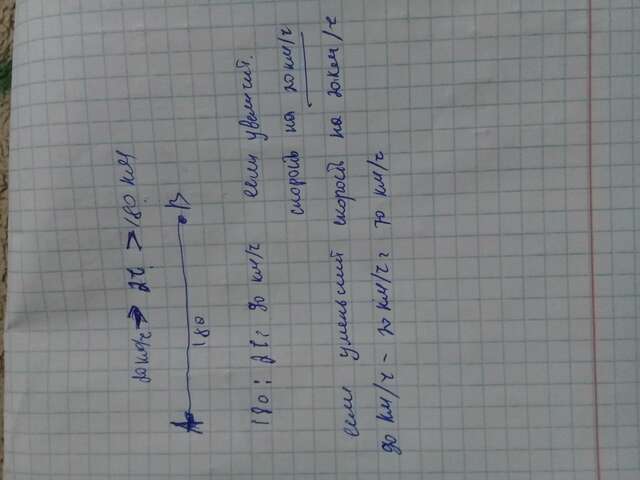 20 км/ч → 2ч. > 180 км
A B
180
180 : 2ч = 90 км/ч если увеличит.
скорость на 20 км/ч
если уменьший скорость на 20 км/ч
90 км/ч - 20 км/ч = 70 км/ч